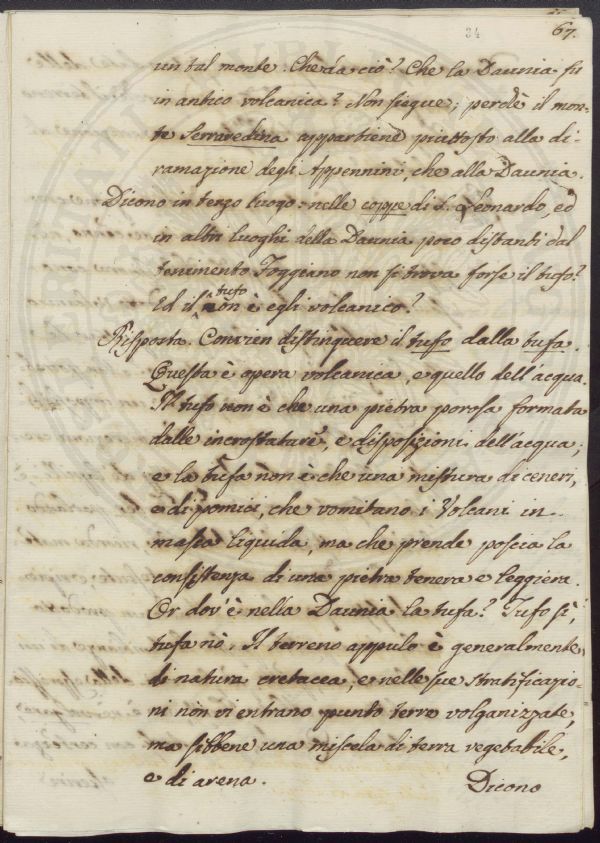 34
67.
un tal monte. Chè da ciò? Che la Daunia fu
in antico volcanica? Non siegue; perchè il mon-
te Serravedina appartiene piuttosto alla di-
ramazione degli Appennini, che alla Daunia.
Dicono in terzo luogo: nelle coppe di S. Leonardo, ed
in altri luoghi della Daunia poco distanti dal
tenimento Foggiano non si trova forse il tufo?
Ed il tufo non è egli volcanico?
Risposta. Convien distinquere il tufo dalla tufa.
Questa è opera volcanica, e quello dell'acqua.
Il tufo non è che una pietra porosa formata
dalle incrostature, e disposizioni dell'acqua;
e la tufa non è che una mistura di ceneri,
e di pomici, che vomitano i Volcani in
massa liquida, ma che prende poscia la
consistenza di una pietra tenera e leggiera.
Or dov'è nella Daunia la tufa? Tufo sì,
tufa nò. Il terreno appulo è generalmente
di natura cretacea, e nelle sue stratificazio-
ni non vi entrano punto terre volganizzate,
ma sibbene una miscela di terra vegetabile,
e di arena.
Dicono